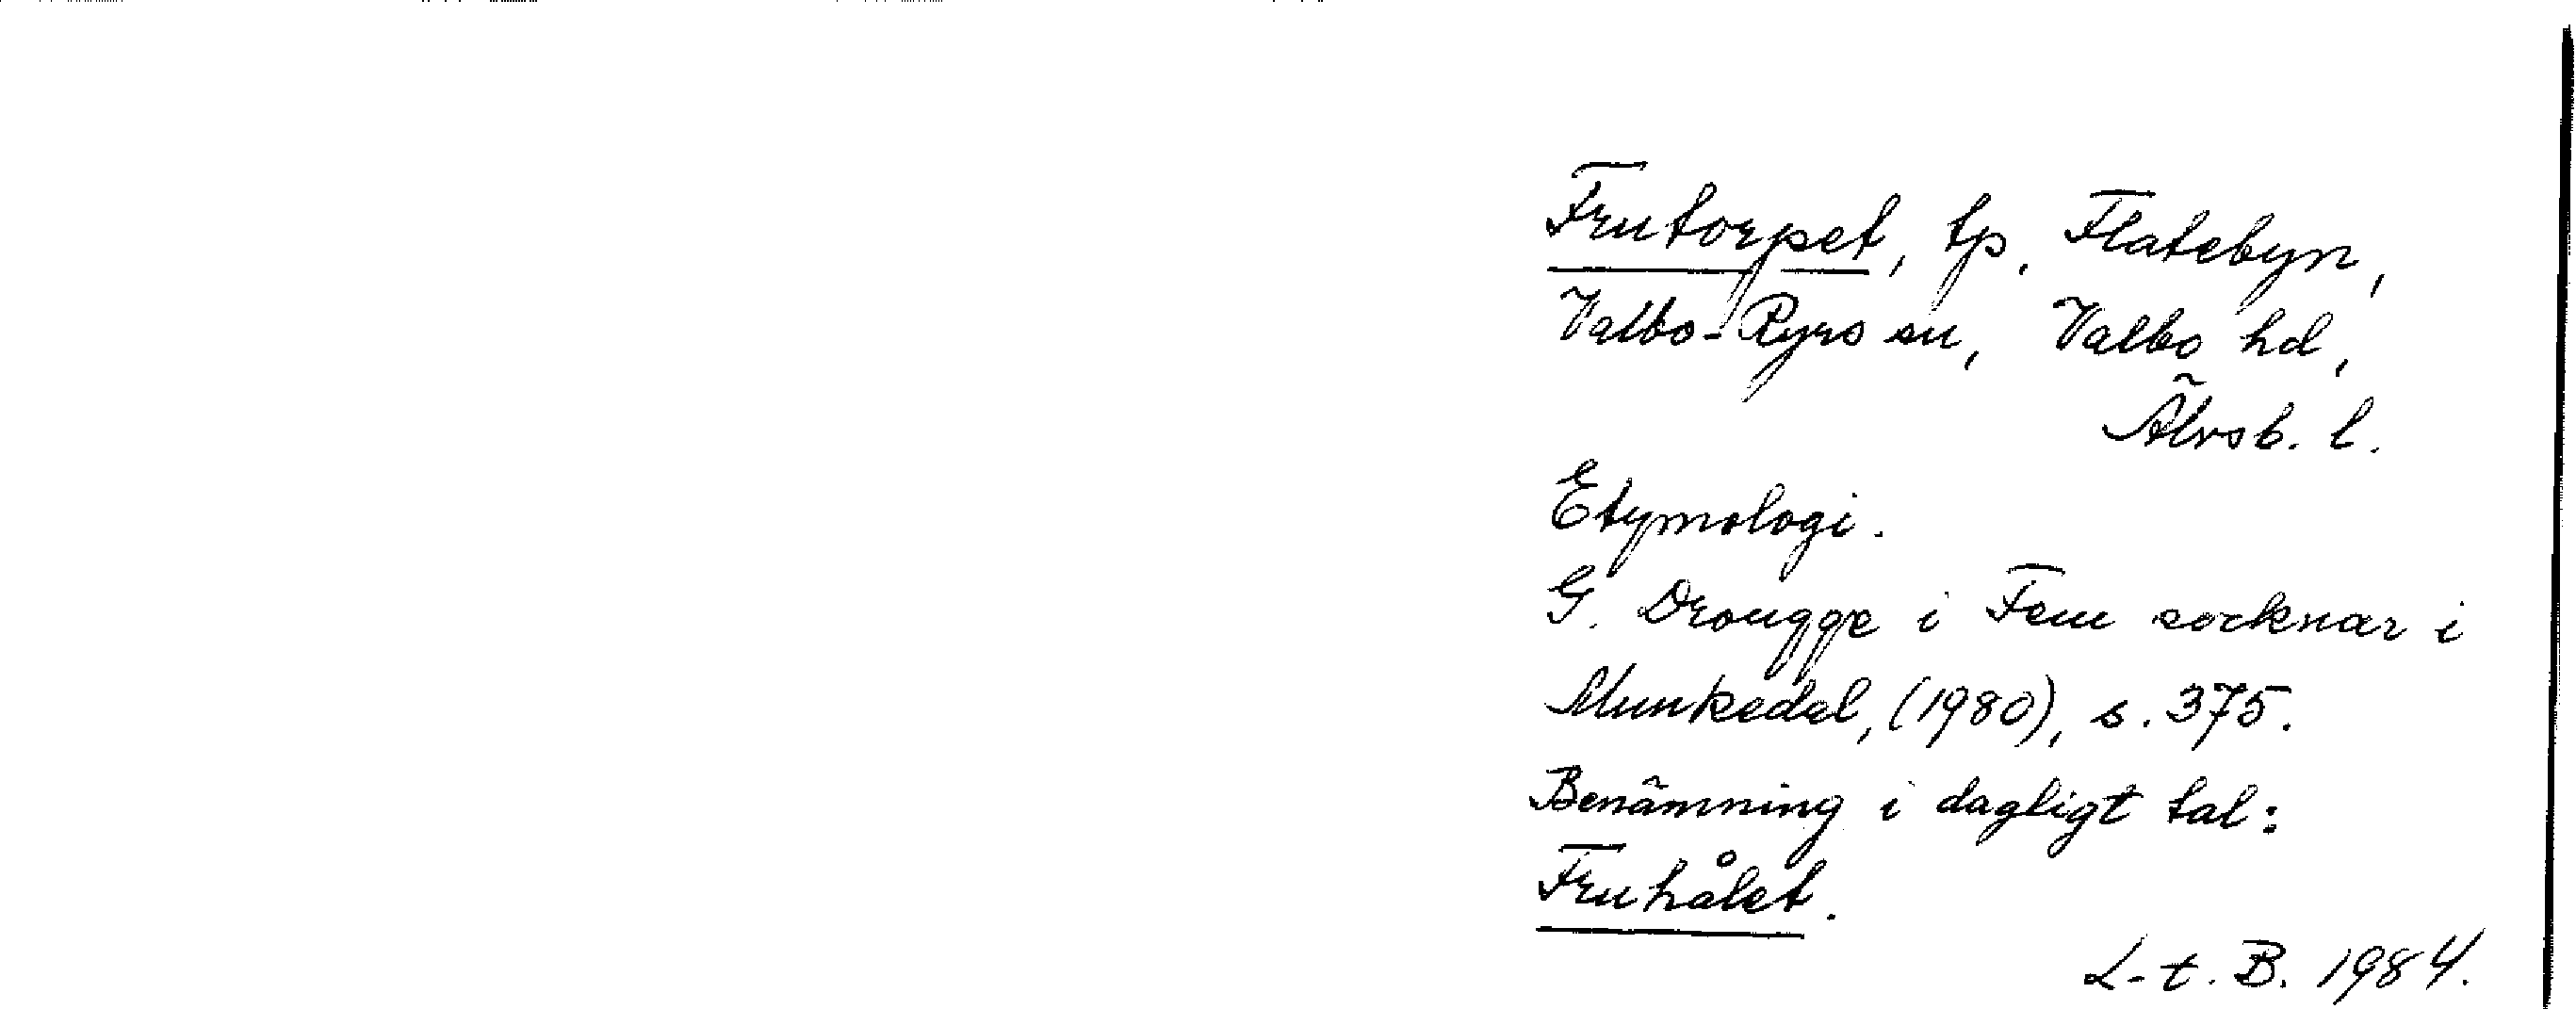 Frutorpet, tp, Flatebyn,
Valbo-Ryrs sn, Valbo hd,
Älvsb. l.
Etymologi.
G. Drougge i Fem socknar i
Munkedal, (1980), s. 375.
Benämning i dagligt tal:
Fruhålet.
L-t. B. 1984.